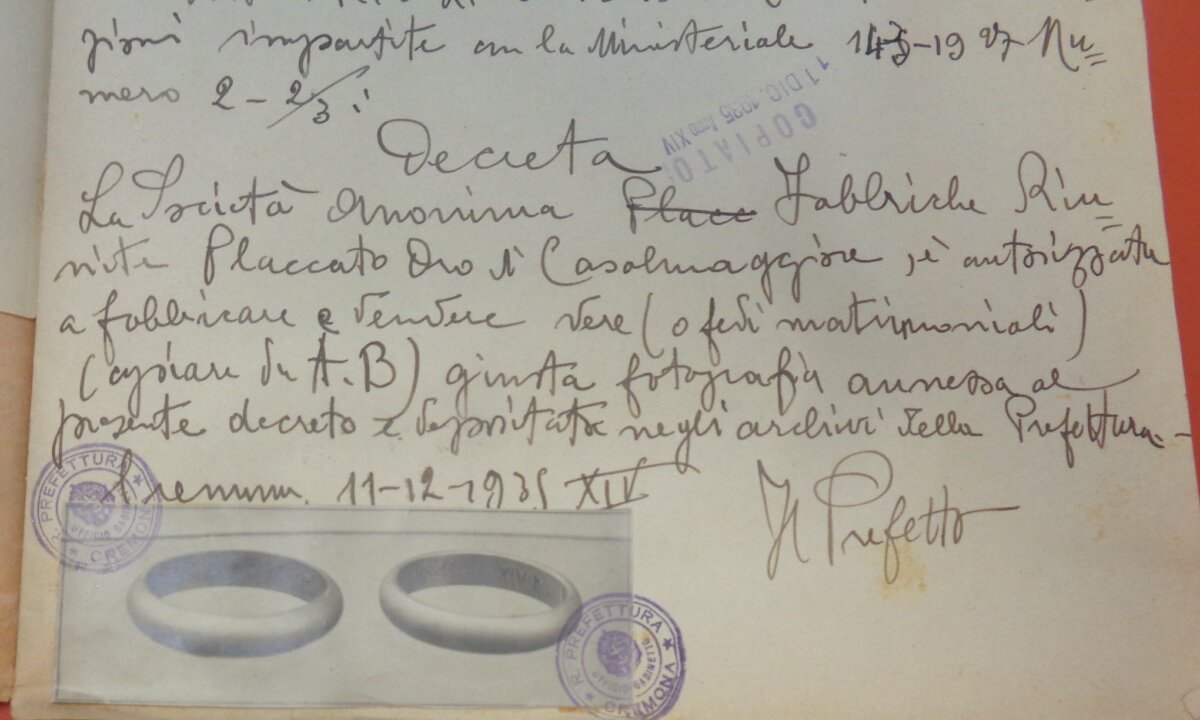 zioni impartite con la Ministeriale 1927 Nu=
mero 2 - 2/3:
COPIATO
11 DIC. 1935 Anno XIV
Decreta
La Società Anonima Placc Fabbriche Riu=
nite Placcato Oro di Casalmaggiore, è autorizzata
a fabbricare e vendere vere (o fedi matrimoniali)
(copiare da A.B) giusta fotografia annessa al
presente decreto e depositata negli archivi della Prefettura.-
Cremona. 11-12-1935 XIV
Il Prefetto
R. PREFETTURA CREMONA
UFFICIO GABINETTO
XIV
R. PREFETTURA CREMONA
UFFICIO GABINETTO